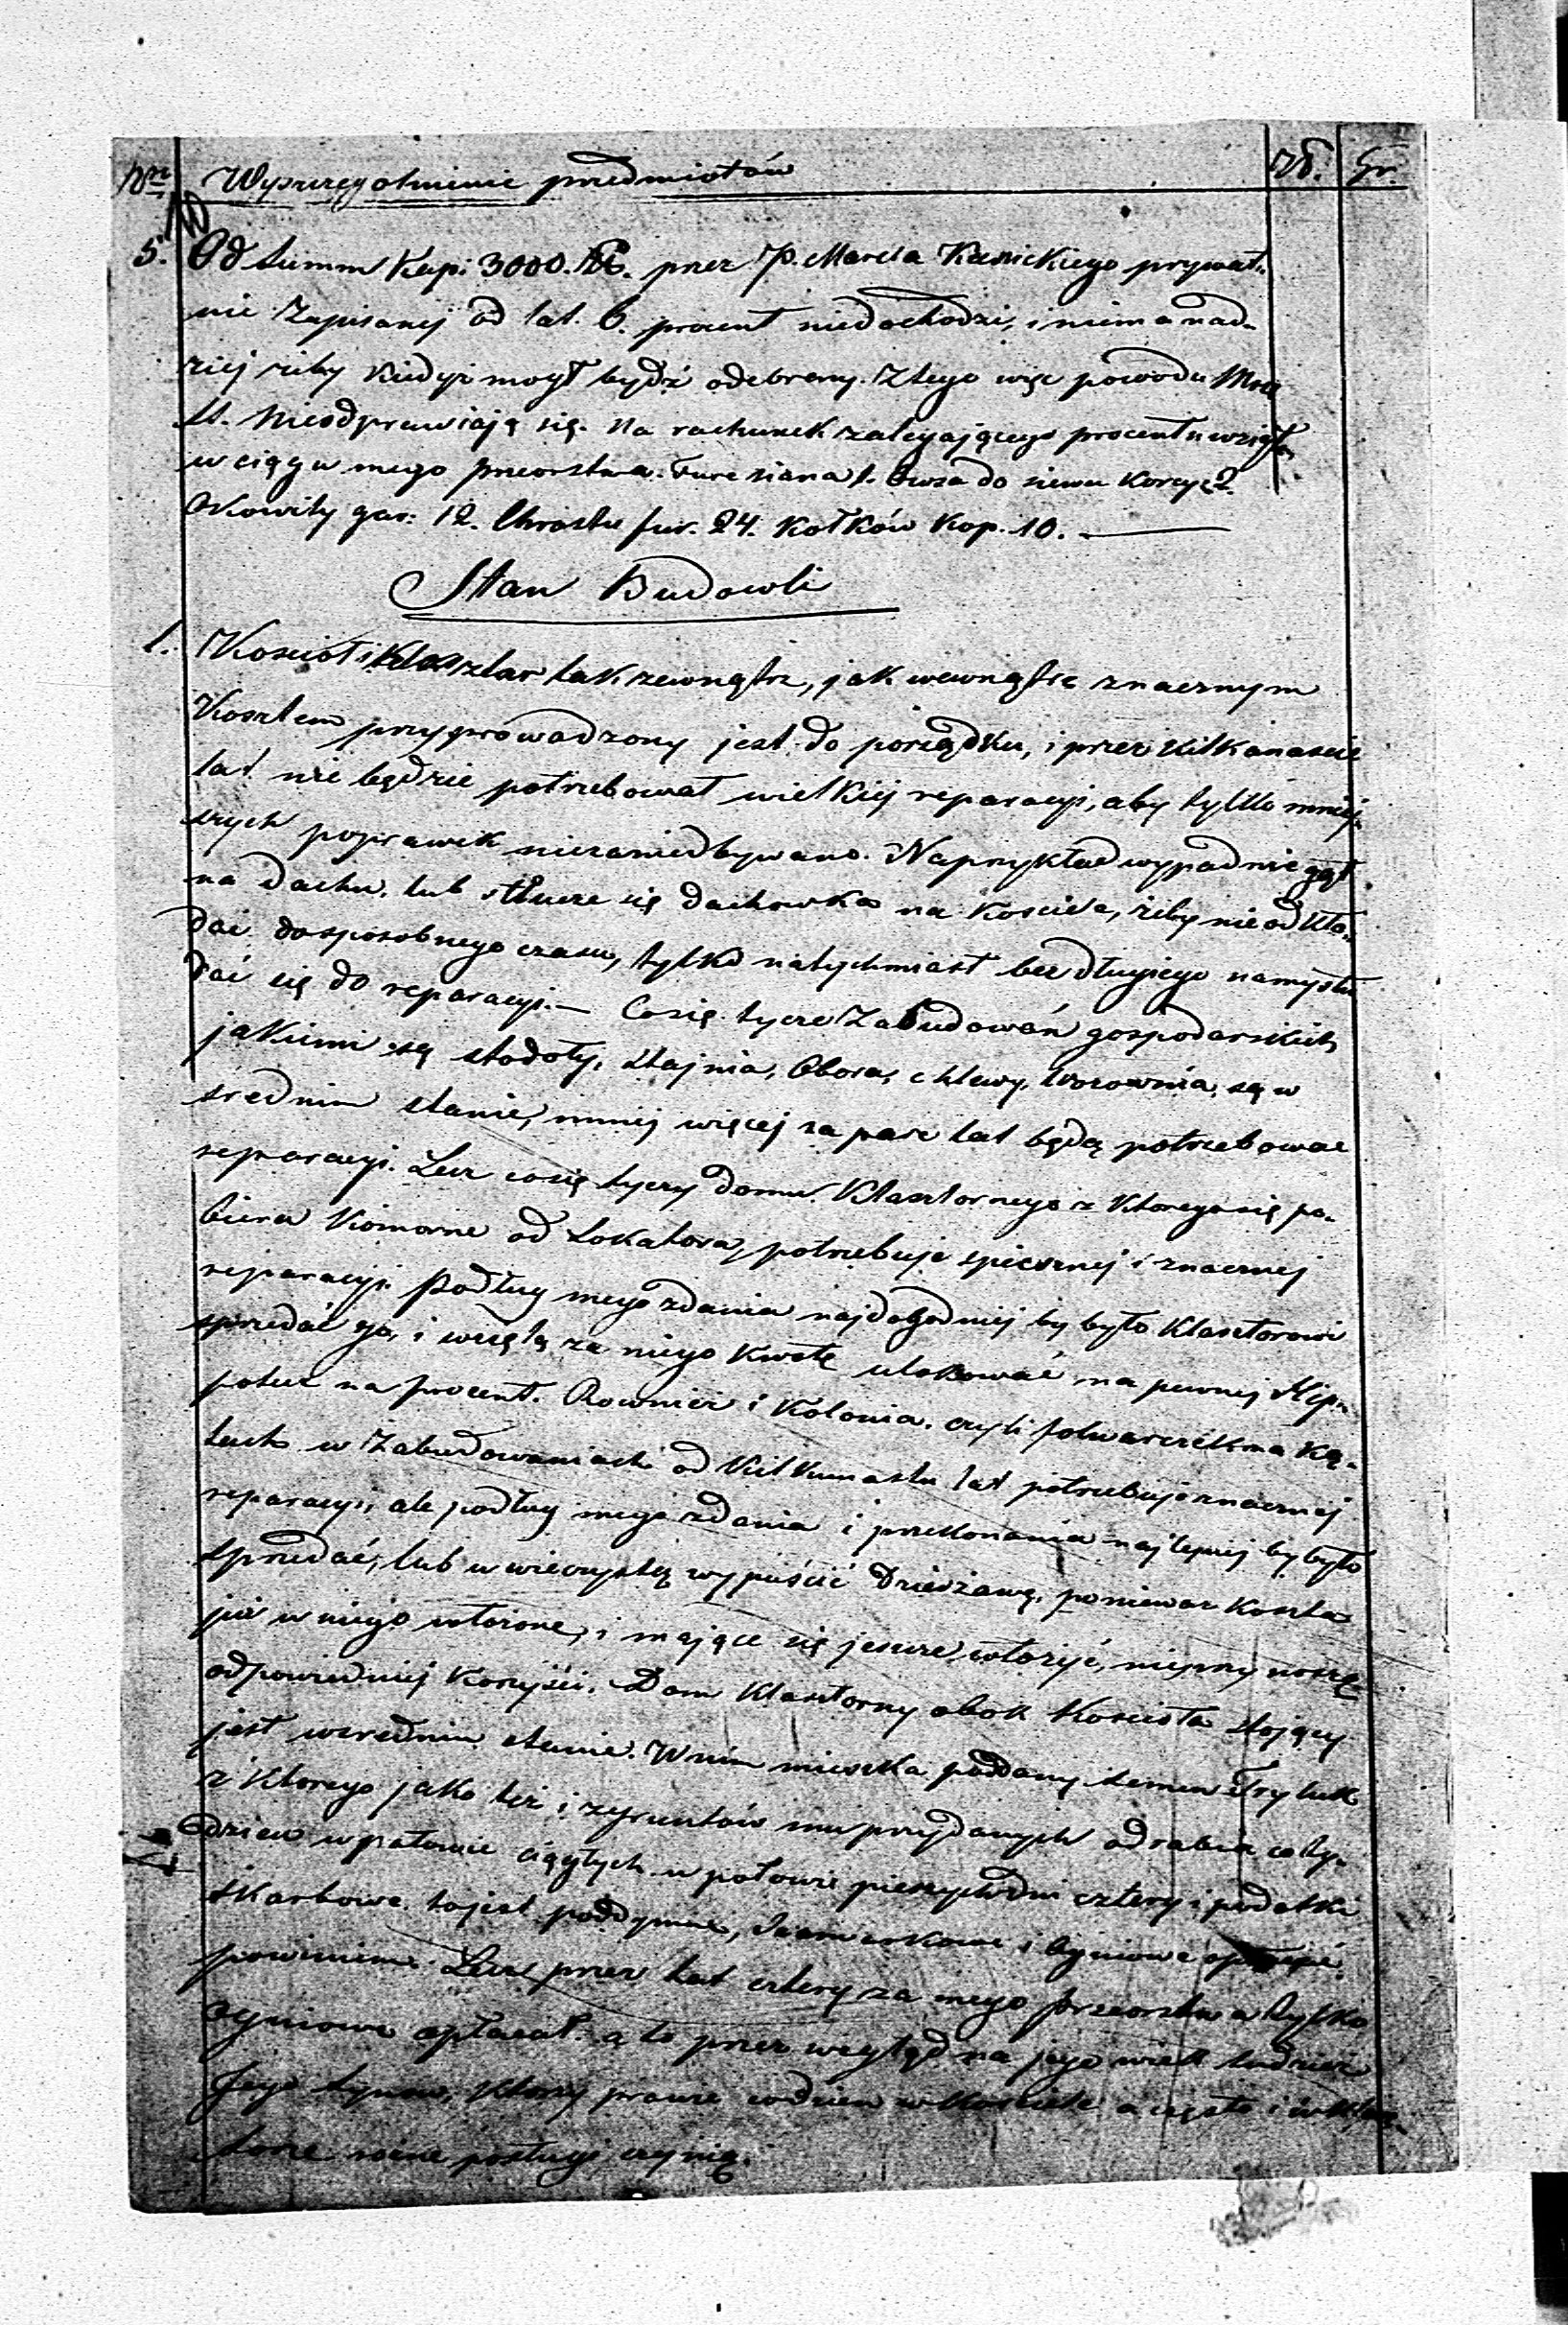 Nro Wyszczegolnienie przedmiotów Zł. Gr.
5. Od Summ Kapi: 3000. Zł. przez P. Marcla Kasickiego prywat-
nie Zapisanej od lat. 6. procent niedochodzi, i niema nad-
ziej żeby kiedyś mogł bydź odebrany. Z tego więc powodu Msze
St. nieodprawiają się. Na rachunek zalegającego procentu wziąłem
w ciągu mego przeorstwa. Fure siana 1. Owsa do siewu Korcy 2.
Okowity gar: 12. Chrostu fur. 24. Kołków Kop. 10.
Stan Budowli
1. Kościoł i Klasztor tak zewnątrz, jak wewnątrz znacznym
Kosztem przyprowadzony jest do porządku, i przez kilkanaście
lat nie będzie potrzebował wielkiej reparacyi, aby tylko mniej-
szych poprawek niezaniedbywano. Naprzykład wypadnie gąt
na dachu, lub stłucze się dachowka na Kosciele, żeby nie odkła-
dać do sposobnego czasu, tylko natychmiast bez długiego namysłu
dać się do reparacyi. — Co się tycze Zabudowań gospodarskich
jakiemi są stodoły, stajnia, Obora, chlewy, Wozownia, są w
średnim stanie, mniej więcej za pare lat będą potrzebować
reparacyi. Lecz co się tyczy domu Klasztornego z Ktorego się po-
biera Komorne od Lokatora, potrzebuje spiesznej i znacznej
reparacyi. Podług mego zdania najdogodniej by było Klasztorowi
sprzedać go, i wziętą za niego Kwotę ulokować na pewnej Hip-
potece na procent. Rownież i Kolonia, czyli folwarczek na Ką-
tach w Zabudowaniach od Kilkunastu lat potrzebuje znacznej
reparacyi, ale podług mego zdania i przekonania najlepiej by było
sprzedać, lub w wieczystą wypuścić Dzierżawę, ponieważ Koszta
już w niego włożone, i mające się jeszcze włożyć, nieprzynoszą
odpowiedniej Korzyści. Dom Klasztorny obok Kościoła stojący
jest w średnim stanie. W nim mieszka poddany
z Ktorego jako też i z gruntów mu przydanych odrabia co ty-
dzien w połowie ciągłych w połowie pieszych dni cztery i podatki
skarbowe to jest podymne, i ogniowe opłacać
powinien. Lecz przez lat cztery za mego przeorstwa tylko
ogniowe opłacał, a to przez wzgląd na jego wiek tudzież
Jego synow, ktorzy prawie codzien w Kościele a często i w Klasz-
torze rożne posługi czynią.